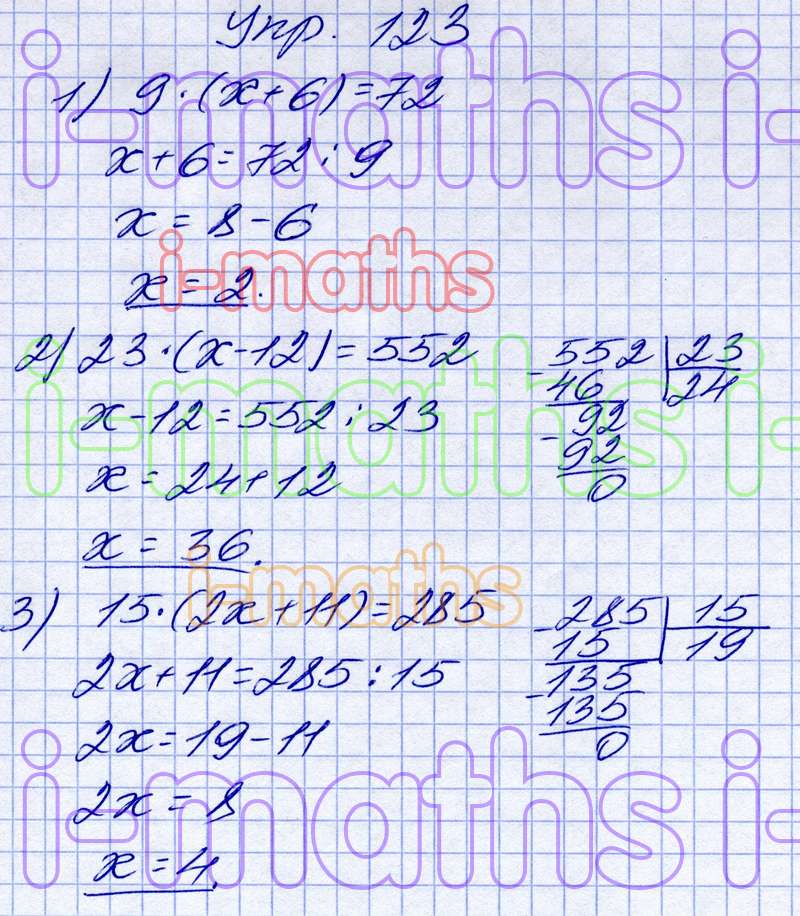 Упр. 123
1) 9·(x+6)=72
x+6=72:9
x=8-6
x=2.
i-maths
2) 23·(x-12)=552
x-12=552:23
x=24+12
x=36.
552 | 23
- 46 | 24
92
- 92
0
i-maths
3) 15·(2x+11)=285
2x+11=285:15
2x=19-11
2x=8
x=4.
- 285 | 15
15 | 19
135
- 135
0
i-maths i-
i-maths i-
i-maths i-